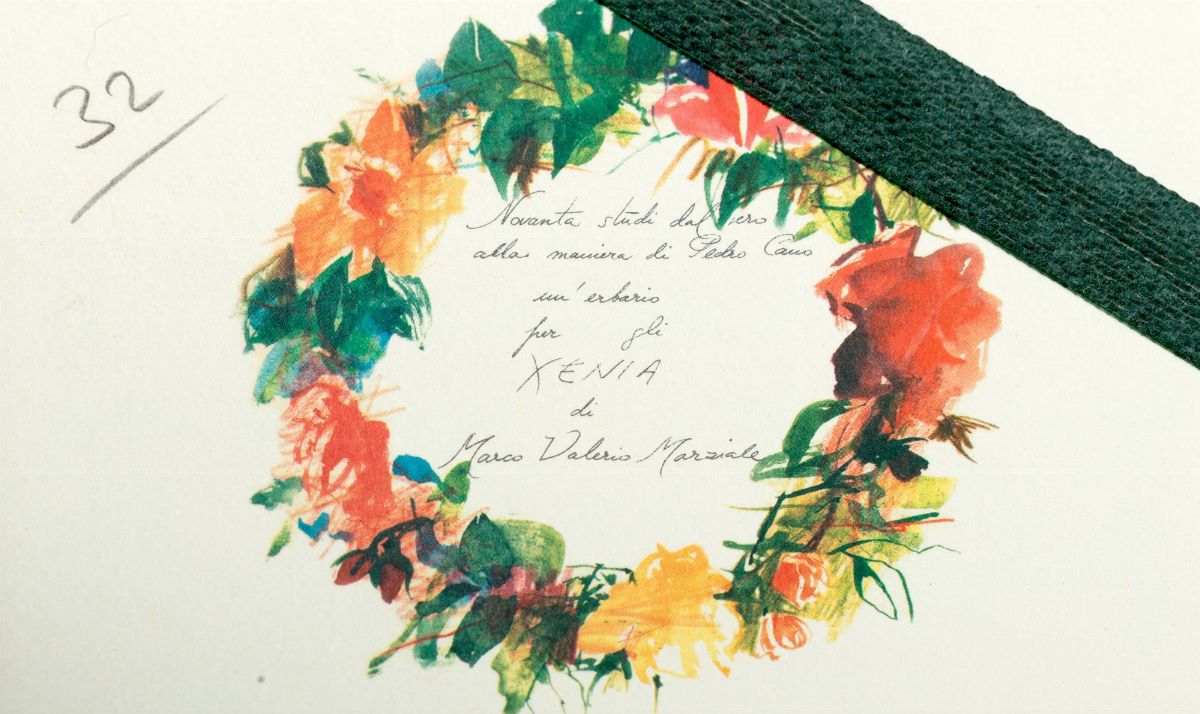 32
Novanta studi dal vero
alla maniera di Pedro Cano
un' erbario
per gli
XENIA
di
Marco Valerio Marziale